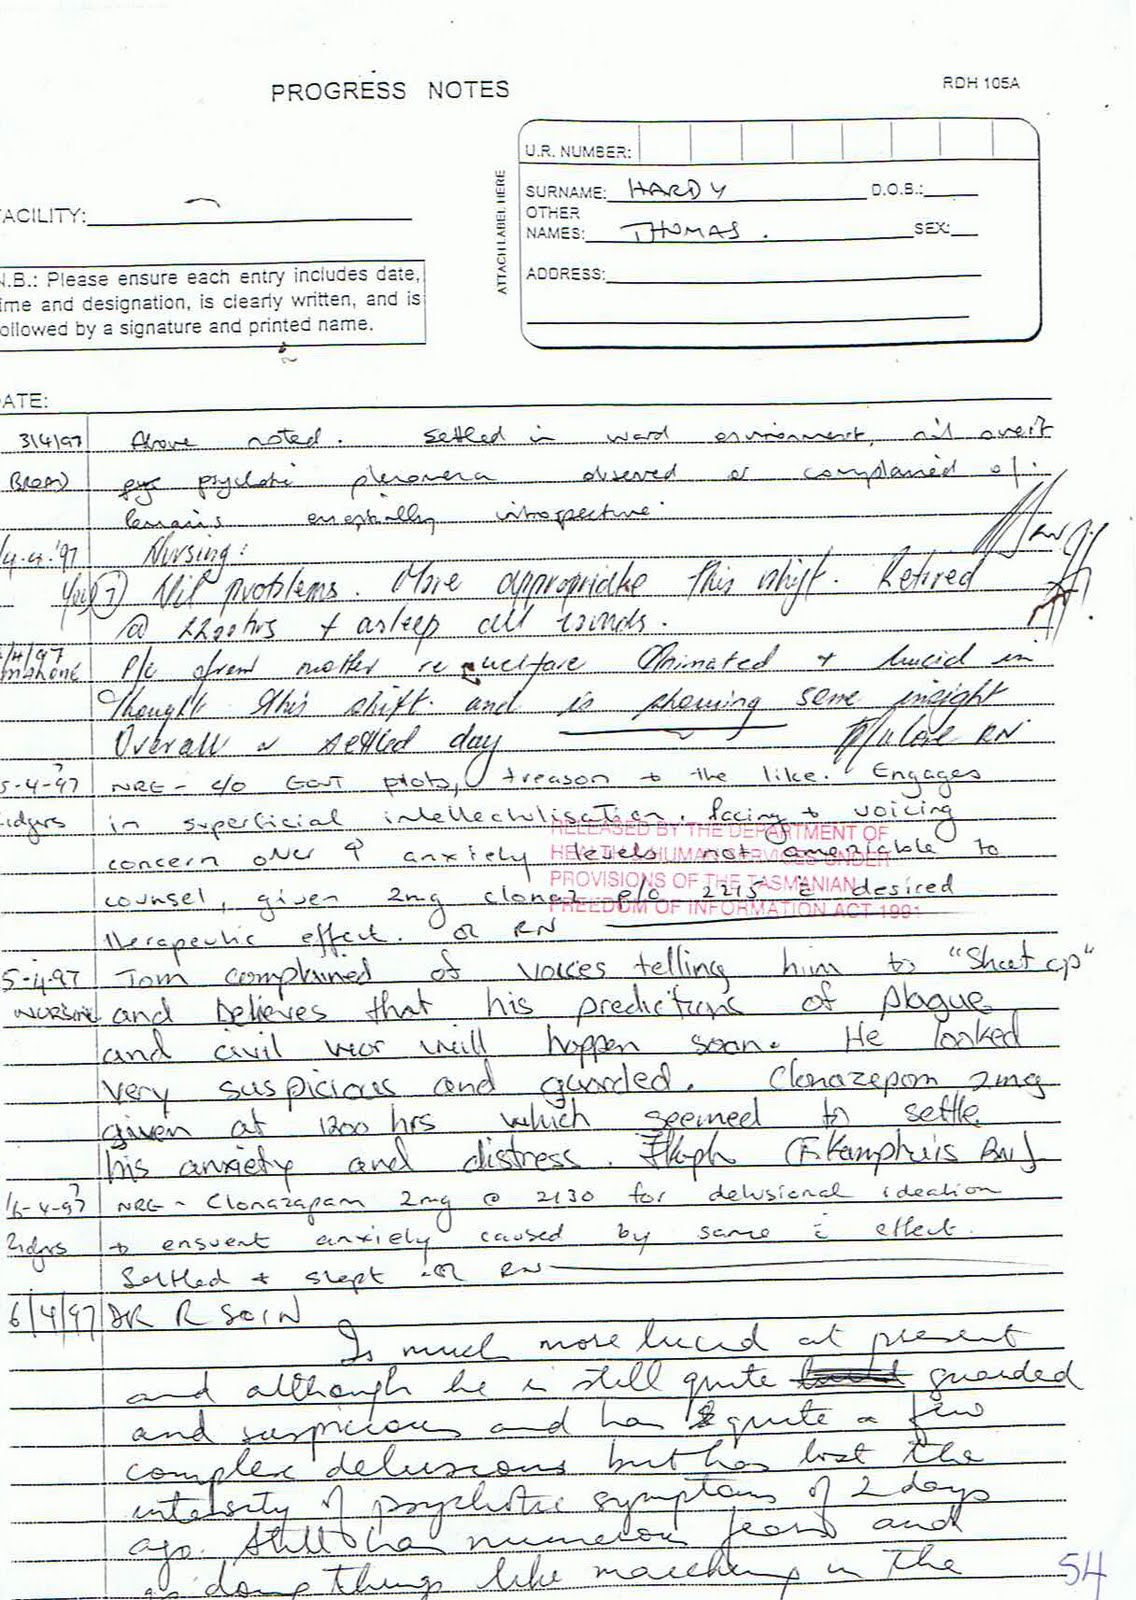 PROGRESS NOTES
RDH 105A
ATTACH LABEL HERE
U.R. NUMBER:
SURNAME: HARDY D.O.B.:
OTHER
NAMES: THOMAS. SEX:
ADDRESS:
ACILITY:
N.B.: Please ensure each entry includes date,
ime and designation, is clearly written, and is
ollowed by a signature and printed name.
ATE:
3/4/97 Above noted. Settled in ward environment, nil overt
psychotic phenomena observed or complained of.
Remains essentially introspective.
'97 Nursing:
Nil problems. More appropriate this shift. Retired
@ 2200hrs + asleep all rounds.
/4/97 P/c from mother re welfare Animated + lucid in
thought this shift. and is showing some insight
Overall a settled day RN
5-4-97 NRG - c/o GOVT plots, treason + the like. Engages
in superficial intellectulisation. Pacing + voicing
concern over ↑ anxiety levels not amenable to
counsel, given 2mg clonaz p/o 2215 c̄ desired
therapeutic effect. RN
RELEASED BY THE DEPARTMENT OF
HEALTH & HUMAN SERVICES UNDER
PROVISIONS OF THE TASMANIAN
FREEDOM OF INFORMATION ACT 1991
5-4-97 Tom complained of voices telling him to "Shut up"
NURSING and believes that his predictions of plague
and civil war will happen soon. He looked
very suspicious and guarded. Clonazepam 2mg
given at 1200 hrs which seemed to settle
his anxiety and distress. (F. Kamphuis RN)
6-4-97 NRG - Clonazapam 2mg @ 2130 for delusional ideation
+ ensuent anxiety caused by same c̄ effect.
Settled + slept RN
6/4/97 DR R SOIN
Is much more lucid at present
and although he is still quite guarded
and suspicious and has quite a few
complex delusions but has lost the
intensity of psychotic symptoms of 2 days
ago. Still has numerous fears and
is doing things like marching in the
54